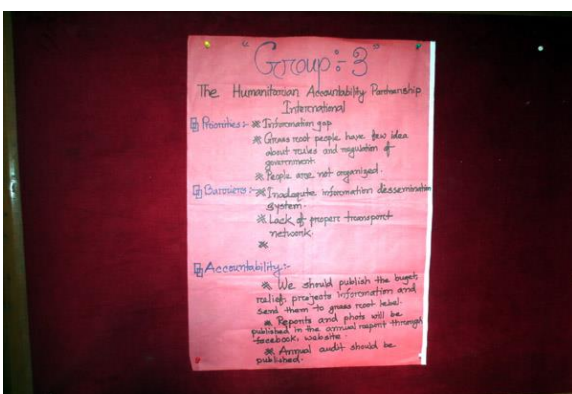 "Group:-3"
The Humanitarian Accountability Partnership
International
Priorities:- * Information gap
* Grass root people have few idea
about rules and regulation of
government.
* People are not organized.
Barriers:- * Inadequate information dessemination
system.
* Lack of proper transport
network.
*
Accountability:-
* We should publish the buget,
relief projects information and
send them to grass root lebel.
* Reports and phots will be
published in the annual report through
facebook, website.
* Annual audit should be
published.